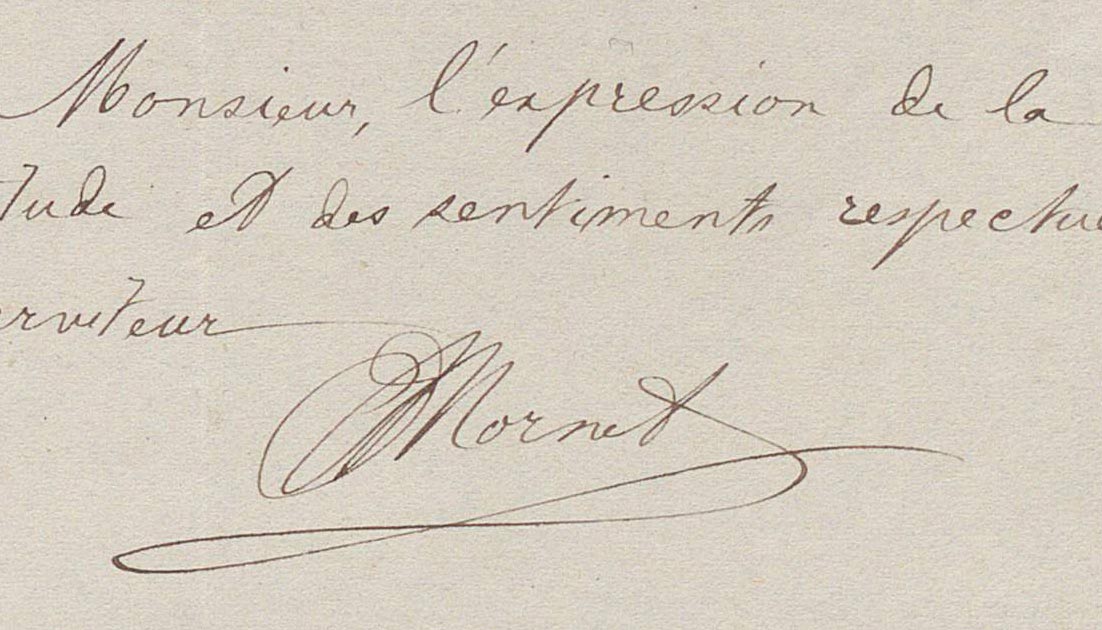 Monsieur, l'expression de la
tude et des sentiments respectue
erviteur
Mornet